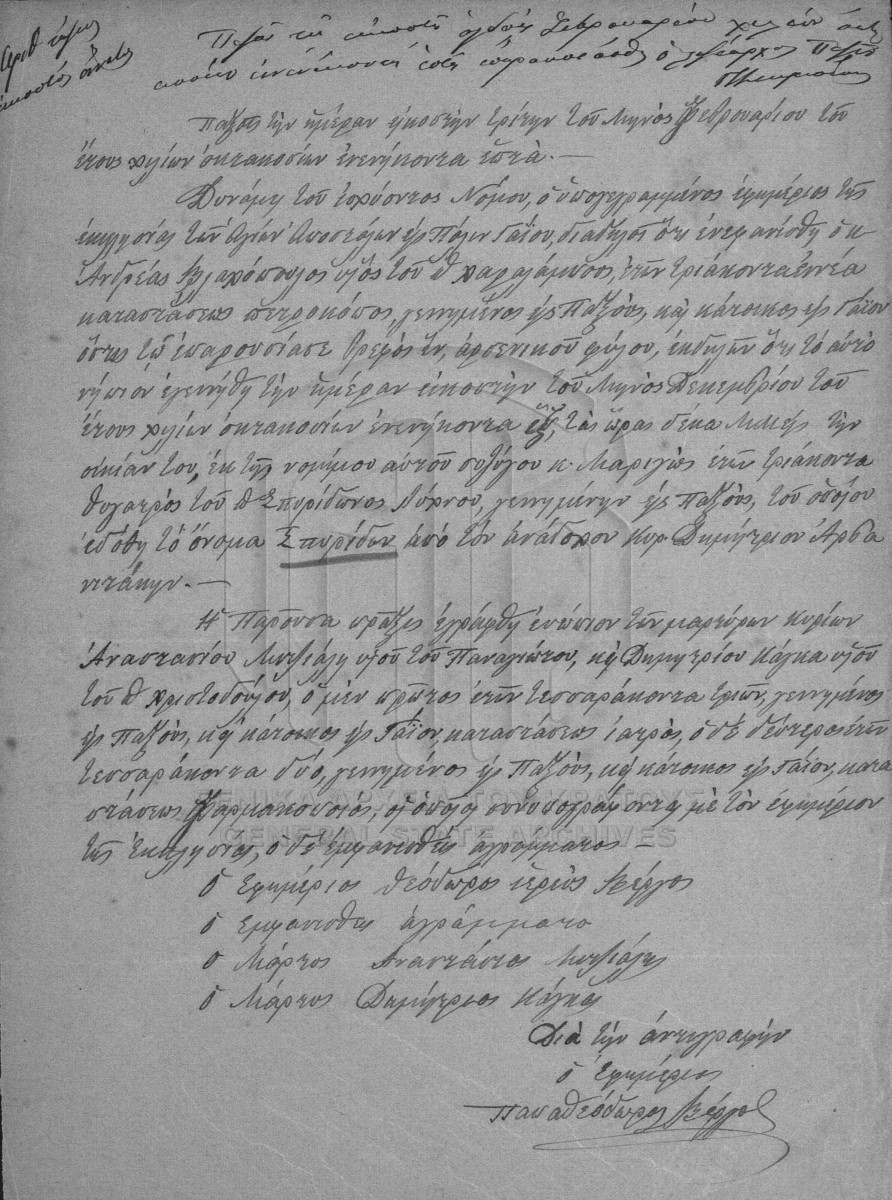 Αριθ
Παξοὶ τῇ εἰκοστῇ ὀγδόῃ Φεβρουαρίου χιλίων ὀκτα
κοσίων ἐνενήκοντα ἑπτὰ ὁ ληξίαρχος Παξῶν
Παξοὺς τὴν ἡμέραν εἰκοστὴν τρίτην τοῦ Μηνὸς Φεβρουαρίου τοῦ
ἔτους χιλίων ὀκτακοσίων ἐνενήκοντα ἑπτὰ. —
Δυνάμει τοῦ ἰσχύοντος Νόμου, ὁ ὑπογεγραμμένος ἐφημέριος τῆς
ἐκκλησίας τῶν Ἁγίων Ἀποστόλων εἰς Πόλιν Γαΐου, διαδηλοῖ ὅτι ἐνεφανίσθη ὁ κ.
Ἀνδρέας Βλαχόπουλος υἱὸς τοῦ Θ Χαραλάμπους, ἐτῶν τριάκοντα ἐννέα
καταστάσεως πετροκόπος, γεννημένος εἰς Παξοὺς, καὶ κάτοικος εἰς Γάϊον
ὅστις τῷ ἐπαρουσίασε βρέφος ἓν, ἀρσενικοῦ φύλου, ἐκδηλῶν ὅτι τὸ αὐτὸ
νήπιον ἐγεννήθη τὴν ἡμέραν εἰκοστὴν τοῦ Μηνὸς Δεκεμβρίου τοῦ
ἔτους χιλίων ὀκτακοσίων ἐνενήκοντα ἓξ, τὰς ὥρας δέκα Μ.Μ. εἰς τὴν
οἰκίαν του, ἐκ τῆς νομίμου αὐτοῦ συζύγου κ. Μαριγὼς ἐτῶν τριάκοντα
θυγατρὸς τοῦ Θ Σπυρίδωνος Λύχνου, γεννημένην εἰς Παξοὺς, τοῦ ὁποίου
ἐδόθη τὸ ὄνομα Σπυρίδων ἀπὸ τὸν ἀνάδοχον Κυρ. Δημήτριον Ἀρβα
νιτάκην. —
Ἡ Παροῦσα πρᾶξις ἐγράφθη ἐνώπιον τῶν μαρτύρων κυρίων
Ἀναστασίου Μιτσιάλη υἱοῦ τοῦ Παναγιώτου, καὶ Δημητρίου Κάγκα υἱοῦ
τοῦ Θ Χριστοδούλου, ὁ μὲν πρῶτος ἐτῶν τεσσαράκοντα τριῶν, γεννημένος
εἰς Παξοὺς, καὶ κάτοικος εἰς Γάϊον, καταστάσεως ἰατρὸς, ὁ δὲ δεύτερος ἐτῶν
τεσσαράκοντα δύο, γεννημένος εἰς Παξοὺς, καὶ κάτοικος εἰς Γάϊον, κατα
στάσεως Φαρμακοποιὸς, οἱ ὁποῖοι συνυπογράφονται μὲ τὸν ἐφημέριον
τῆς Ἐκκλησίας, ὁ δὲ ἐμφανισθεὶς ἀγράμματος —
Ὁ Ἐφημέριος Θεόδωρος ἱερεὺς Βέργος
Ὁ Ἐμφανισθεὶς ἀγράμματο
Ὁ Μάρτυς Ἀναστάσιος Μιτσιάλης
Ὁ Μάρτυς Δημήτριος Κάγκας
Διὰ τὴν ἀντιγραφὴν
ὁ Ἐφημέριος
Παπαθεόδωρος Βέργος
ΓΕΝΙΚΑ ΑΡΧΕΙΑ ΤΟΥ ΚΡΑΤΟΥΣ
GENERAL STATE ARCHIVES